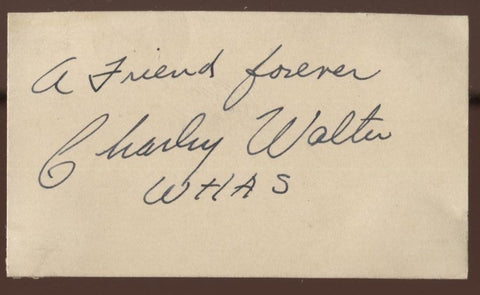 A Friend forever
Charley Walter
WHAS